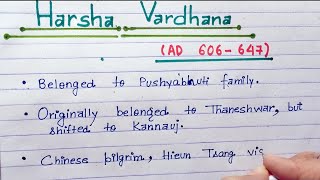 Harsha Vardhana
(AD 606-647)
• Belonged to Pushyabhuti family.
• Originally belonged to Thaneshwar, but
shifted to Kannauj.
• Chinese pilgrim, Hieun Tsang vis